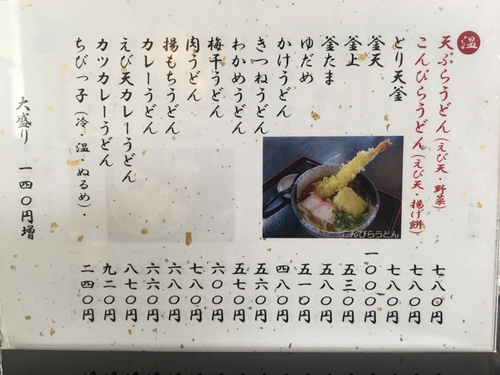 温
天ぷらうどん(えび天・野菜) 七八〇円
こんぴらうどん(えび天・揚げ餅) 七八〇円
とり天釜 七八〇円
釜天 一〇〇〇円
釜上 五三〇円
釜たま 五八〇円
ゆだめ 五一〇円
かけうどん 四八〇円
きつねうどん 五六〇円
わかめうどん 五七〇円
梅干うどん 六〇〇円
肉うどん 七八〇円
揚もちうどん 六八〇円
カレーうどん 六六〇円
えび天カレーうどん 八七〇円
カツカレーうどん 九二〇円
ちびっ子(冷・温・ぬるめ)・ 二四〇円
大盛り 一四〇円増
こんぴらうどん